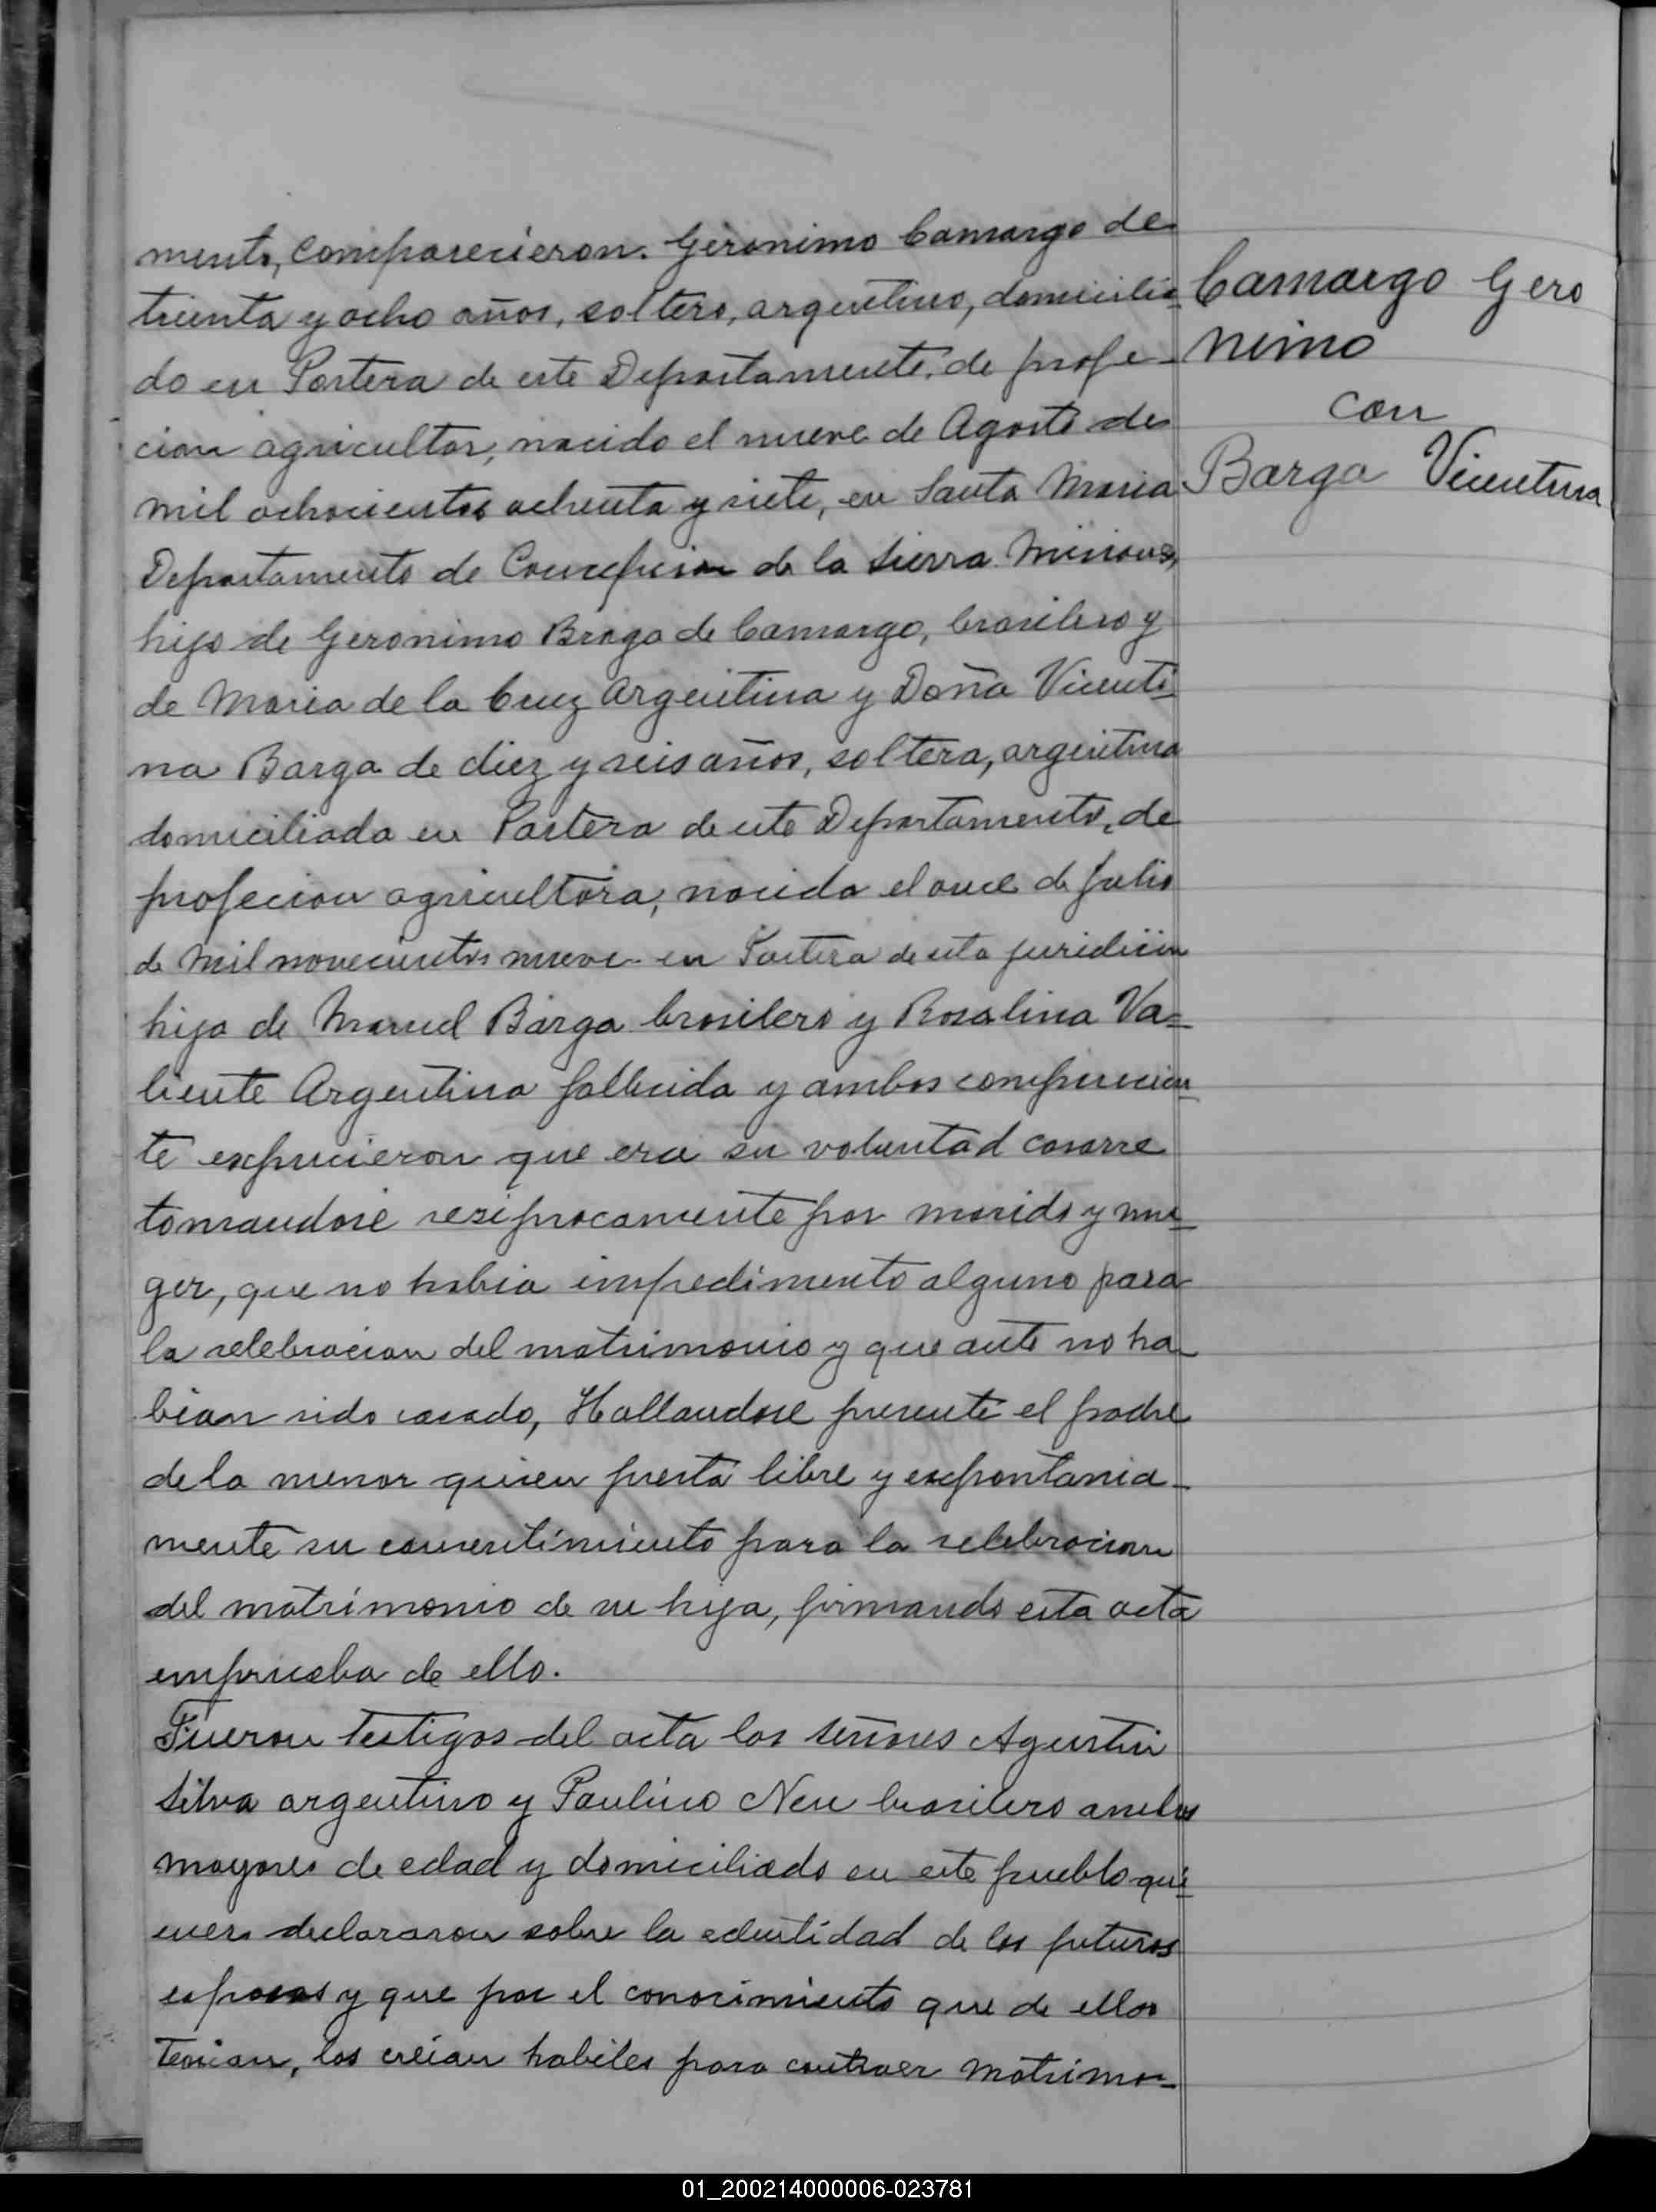 mento, comparecieron. Geronimo Camargo de
treinta y ocho años, soltero, argentino, domicilia-
do en Portera de este Departamento, de profe-
cion agricultor, nacido el nueve de Agosto de
mil ochocientos ochenta y siete, en Santa Maria
Departamento de Concepcion de la Sierra Misiones,
hijo de Geronimo Braga de Camargo, brasilero y
de Maria de la Cruz Argentina y Doña Vicenti-
na Barga de diez y seis años, soltera, argentina
domiciliada en Portera de este Departamento, de
profecion agricultora, nacida el once de Julio
de mil novecientos nueve en Portera de esta juridicion
hija de Manuel Barga brasilero y Rosalina Va-
liente Argentina fallecida y ambos comparecien-
te expucieron que era su voluntad casarse
tomandose resiprocamente por marido y mu-
ger, que no habia impedimento alguno para
la selebracion del matrimonio y que ante no ha-
bian sido casado, Hallandose presente el padre
de la menor quien presta libre y expontania-
mente su consentimiento para la selebracion
del matrimonio de su hija, firmando esta acta
emprueba de ello.
Fueron testigos del acta los señores Agustin
Silva argentino y Paulino Neu brasilero ambos
mayores de edad y domiciliado en este pueblo qui-
enes declararon sobre la edentidad de los futuros
esposos y que por el conocimiento que de ellos
tenian, los creian habiles para contraer matrimo-
Camargo Gero
nimo
con
Barga Vicentina
01_200214000006-023781